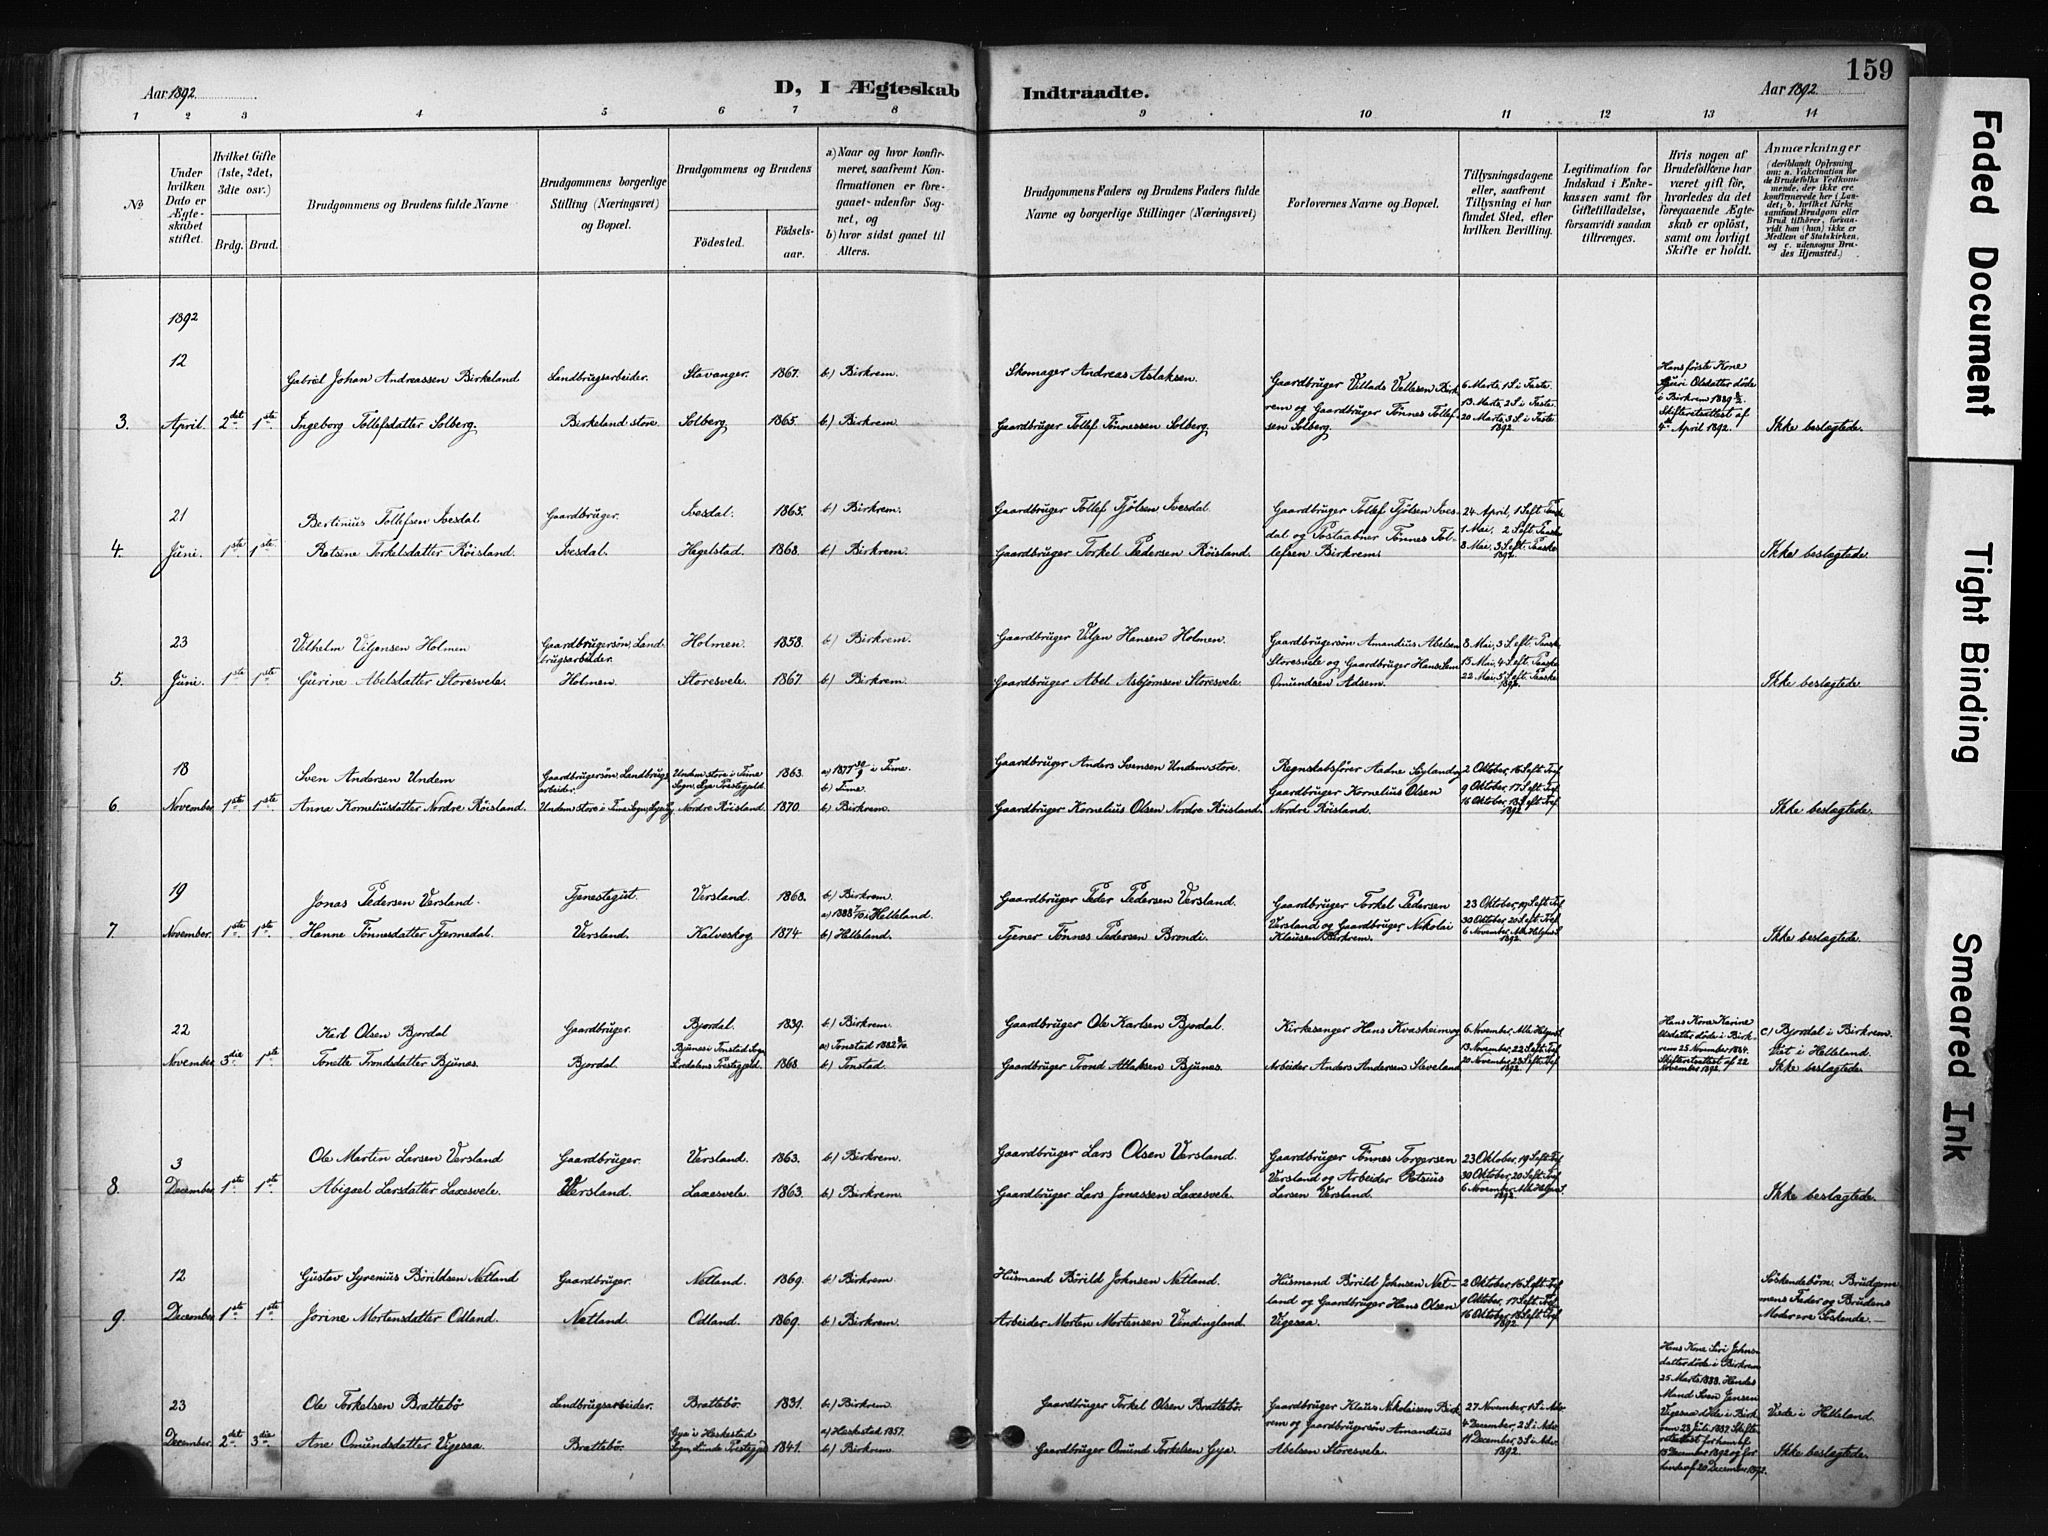 159
Aar 1892
D, I Ægteskab Indtraadte.
Aar 1892
1 2 3 4 5 6 7 8 9 10 11 12 13 14
№
Under hvilken Dato er Ægteskabet stiftet.
Hvilket Gifte (1ste, 2det, 3die osv.)
Brdg. Brud.
Brudgommens og Brudens fulde Navne
Brudgommens borgerlige Stilling (Næringsvei) og Bopæl.
Brudgommens og Brudens
Födested.
Födselsaar.
a) Naar og hvor konfirmeret, saafremt Konfirmationen er foregaaet udenfor Sognet, og
b) hvor sidst gaaet til Alters.
Brudgommens Faders og Brudens Faders fulde Navne og borgerlige Stillinger (Næringsvei)
Forlovernes Navne og Bopæl.
Tillysningsdagene eller, saafremt Tillysning ei har fundet Sted, efter hvilken Bevilling.
Legitimation for Indskud i Enkekassen samt for Giftetilladelse, forsaavidt saadan tiltrænges.
Hvis nogen af Brudefolkene har været gift för, hvorledes da det foregaaende Ægteskab er oplöst, samt om lovligt Skifte er holdt.
Anmærkninger
(deriblandt Oplysning om: a. Vakcination for de Brudefolks Vedkommende, der ikke ere konfirmerede her i Landet; b. hvilket Kirkesamfund Brudgom eller Brud tilhörer, forsaavidt han (hun) ikke er Medlem af Statskirken, og c. udensogns Brudes Hjemsted.)
1892
12 Gabriel Johan Andreassen Birkeland Landbrugsarbeider. Stavanger. 1867. b) Birkrem. Skomager Andreas Aslaksen.
3. April. 2det 1ste Ingeborg Tollefsdatter Solberg. Birkeland store. Solberg. 1865. b) Birkrem. Gaardbruger Tollef Tönnessen Solberg.
Gaardbruger Villads Vellesen Birkrem og Gaardbruger Tönnes Tollefsen Solberg.
6 Marts, 1 S. i Faste
13 Marts, 2 S. i Faste
20 Marts, 3 S. i Faste 1892.
Hans förste Kone Guri Olsdatter döde i Birkrem 1889
Skifteretsattest af 4de April 1892.
Ikke beslægtede.
21 Bertinius Tollefsen Ivesdal Gaardbruger. Ivesdal. 1865. b) Birkrem. Gaardbruger Tollef Fjölsen Ivesdal
4. Juni. 1ste 1ste Ratsine Torkelsdatter Röisland. Ivesdal. Hegelstad. 1868. b) Birkrem. Gaardbruger Torkel Pedersen Röisland.
Gaardbruger Tollef Fjölsen Ivesdal og Postaabner Tönnes Tollefsen Birkrem.
24 April, 1 S. eft. Paaske
1 Mai, 2 S. eft. Paaske
8 Mai, 3 S. eft. Paaske 1892.
Ikke beslægtede.
23 Vilhelm Viljensen Holmen Gaardbrugersön, Landbrugsarbeider. Holmen. 1858. b) Birkrem. Gaardbruger Viljen Hansen Holmen.
5. Juni. 1ste 1ste Gurine Abelsdatter Storesvele. Holmen. Storesvele. 1867. b) Birkrem. Gaardbruger Abel Asbjörnsen Storesvele.
Gaardbrugersön Amandius Abelsen Storesvele og Gaardbruger Hans Sem Omundsen Adsem.
8 Mai, 3 S. eft. Paaske
15 Mai, 4 S. eft. Paaske
22 Mai, 5 S. eft. Paaske 1892.
Ikke beslægtede.
18 Sven Andersen Undem Gaardbrugersön, Landbrugsarbeider. Undem store i Time Sogn, Lye Præstegjeld. 1863. a) 1877 30/9 i Time. b) Time. Gaardbruger Anders Svensen Undem store.
6. November. 1ste 1ste Anna Korneliusdatter Nordre Röisland. Undem store i Time Sogn, Lye Pgj. Nordre Röisland. 1870. b) Birkrem. Gaardbruger Kornelius Olsen Nordre Röisland.
Regnskabsförer Aadne Söyland og Gaardbruger Kornelius Olsen Nordre Röisland.
2 Oktober, 16 S. eft. Tref.
9 Oktober, 17 S. eft. Tref.
16 Oktober, 18 S. eft. Tref. 1892
Ikke beslægtede.
19 Jonas Pedersen Versland. Tjenestegut. Versland. 1868. b) Birkrem. Gaardbruger Peder Pedersen Versland.
7. November. 1ste 1ste Hanne Tönnesdatter Tjermedal. Versland. Kalveskog. 1874 a) 1888 7/10 i Helleland. b) Helleland. Tjener Tönnes Pedersen Brondi.
Gaardbruger Torkel Pedersen Versland og Gaardbruger Nikolai Klausen Birkrem.
23 Oktober, 19 S. eft. Tref.
30 Oktober, 20 S. eft. Tref.
6 November, Alle Helgens S. 1892.
Ikke beslægtede.
22 Karl Olsen Bjordal Gaardbruger. Bjordal. 1839. b) Birkrem. Gaardbruger Ole Karlsen Bjordal.
November. 3die 1ste Tonette Trondsdatter Bjunes. Bjordal. Bjunes i Tonstad Sogn Siredalens Præstegjeld. 1868. a) Tonstad 1882 b) Tonstad. Gaardbruger Trond Atlaksen Bjunes.
Kirkesanger Hans Kvasheim og Arbeider Anders Andersen Sleveland
6 November, Alle Helgens S.
13 November, 22 S. eft. Tref.
20 November, 23 S. eft. Tref. 1892.
Hans Kone Karine Olsdatter döde i Birkrem 25 November 1884. Skifteretsattest af 22 November 1892.
c) Bjordal i Birkrem. Viet i Helleland. Ikke beslægtede.
3 Ole Martin Larsen Versland Gaardbruger. Versland. 1863. b) Birkrem. Gaardbruger Lars Olsen Versland.
8. December. 1ste 1ste Abigael Larsdatter Laxesvele. Versland. Laxesvele. 1863. b) Birkrem. Gaardbruger Lars Jonassen Laxesvele.
Gaardbruger Tönnes Torgersen Versland og Arbeider Ratsius Larsen Versland.
23 Oktober, 19 S. eft. Tref.
30 Oktober, 20 S. eft. Tref.
6 November, Alle Helgens S. 1892.
Ikke beslægtede.
12 Gustav Syrenius Börildsen Netland Gaardbruger. Netland. 1869. b) Birkrem. Husmand Börild Johnsen Netland.
9. December. 1ste 1ste Jorine Mortensdatter Odland. Netland. Odland. 1869. b) Birkrem. Arbeider Morten Mortensen Vindingland
Husmand Börild Johnsen Netland og Gaardbruger Hans Olsen Vigesaa.
2 Oktober, 16 S. eft. Tref.
9 Oktober, 17 S. eft. Tref.
16 Oktober, 18 S. eft. Tref. 1892.
Söskendebörn. Brudgommens Fader og Brudens Moder ere Söskende.
23 Ole Torkelsen Brattebö Landbrugsarbeider. Brattebö. 1831. b) Birkrem. Gaardbruger Torkel Olsen Brattebö.
December. 2det 3die Ane Omundsdatter Vigesaa. Brattebö. Gya i Heskestad Sogn, Lunde Præstegjeld. 1841. a) Heskestad 1857. b) Birkrem Gaardbruger Omund Torkelsen Gya.
Gaardbruger Klaus Nikolaisen Birkrem og Gaardbrugersön Amandius Abelsen Storesvele.
27 November, 1 S. i Adv.
4 December, 2 S. i Adv.
11 December, 3 S. i Adv. 1892.
Hans Kone Siri Johnsdatter döde i Birkrem 25 Marts 1888. Hendes Mand Sven Jensen Vigesaa döde i Birkrem 23 Juli 1887. Skifteretsattest for ham af 15 December 1892 og for hende af 20 December 1892.
Viede i Helleland.
Ikke beslægtede.
Faded Document
Tight Binding
Smeared Ink